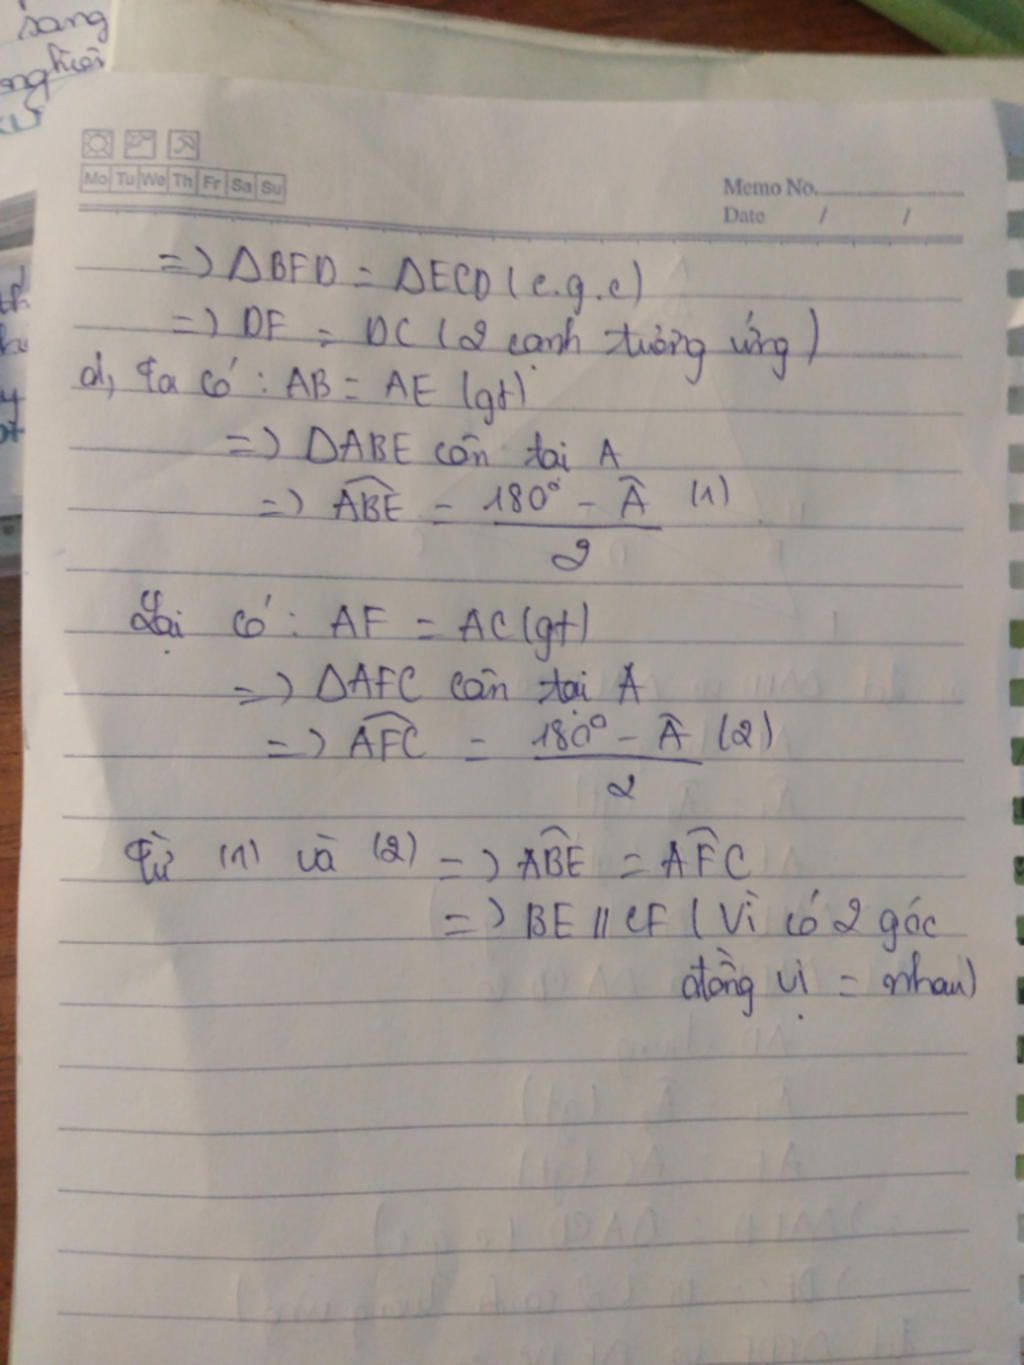 sang
nghiên
Mo Tu We Th Fr Sa Su
Memo No.
Date / /
=> ΔBFD = ΔECD (c.g.c)
=> DF = DC (2 cạnh tương ứng)
d, Ta có: AB = AE (gt)
=> ΔABE cân tại A
=> \widehat{ABE} = \frac{180° - \widehat{A}}{2} (1)
Lại có: AF = AC (gt)
=> ΔAFC cân tại A
=> \widehat{AFC} = \frac{180° - \widehat{A}}{2} (2)
Từ (1) và (2) => \widehat{ABE} = \widehat{AFC}
=> BE // CF (Vì có 2 góc
đồng vị = nhau)